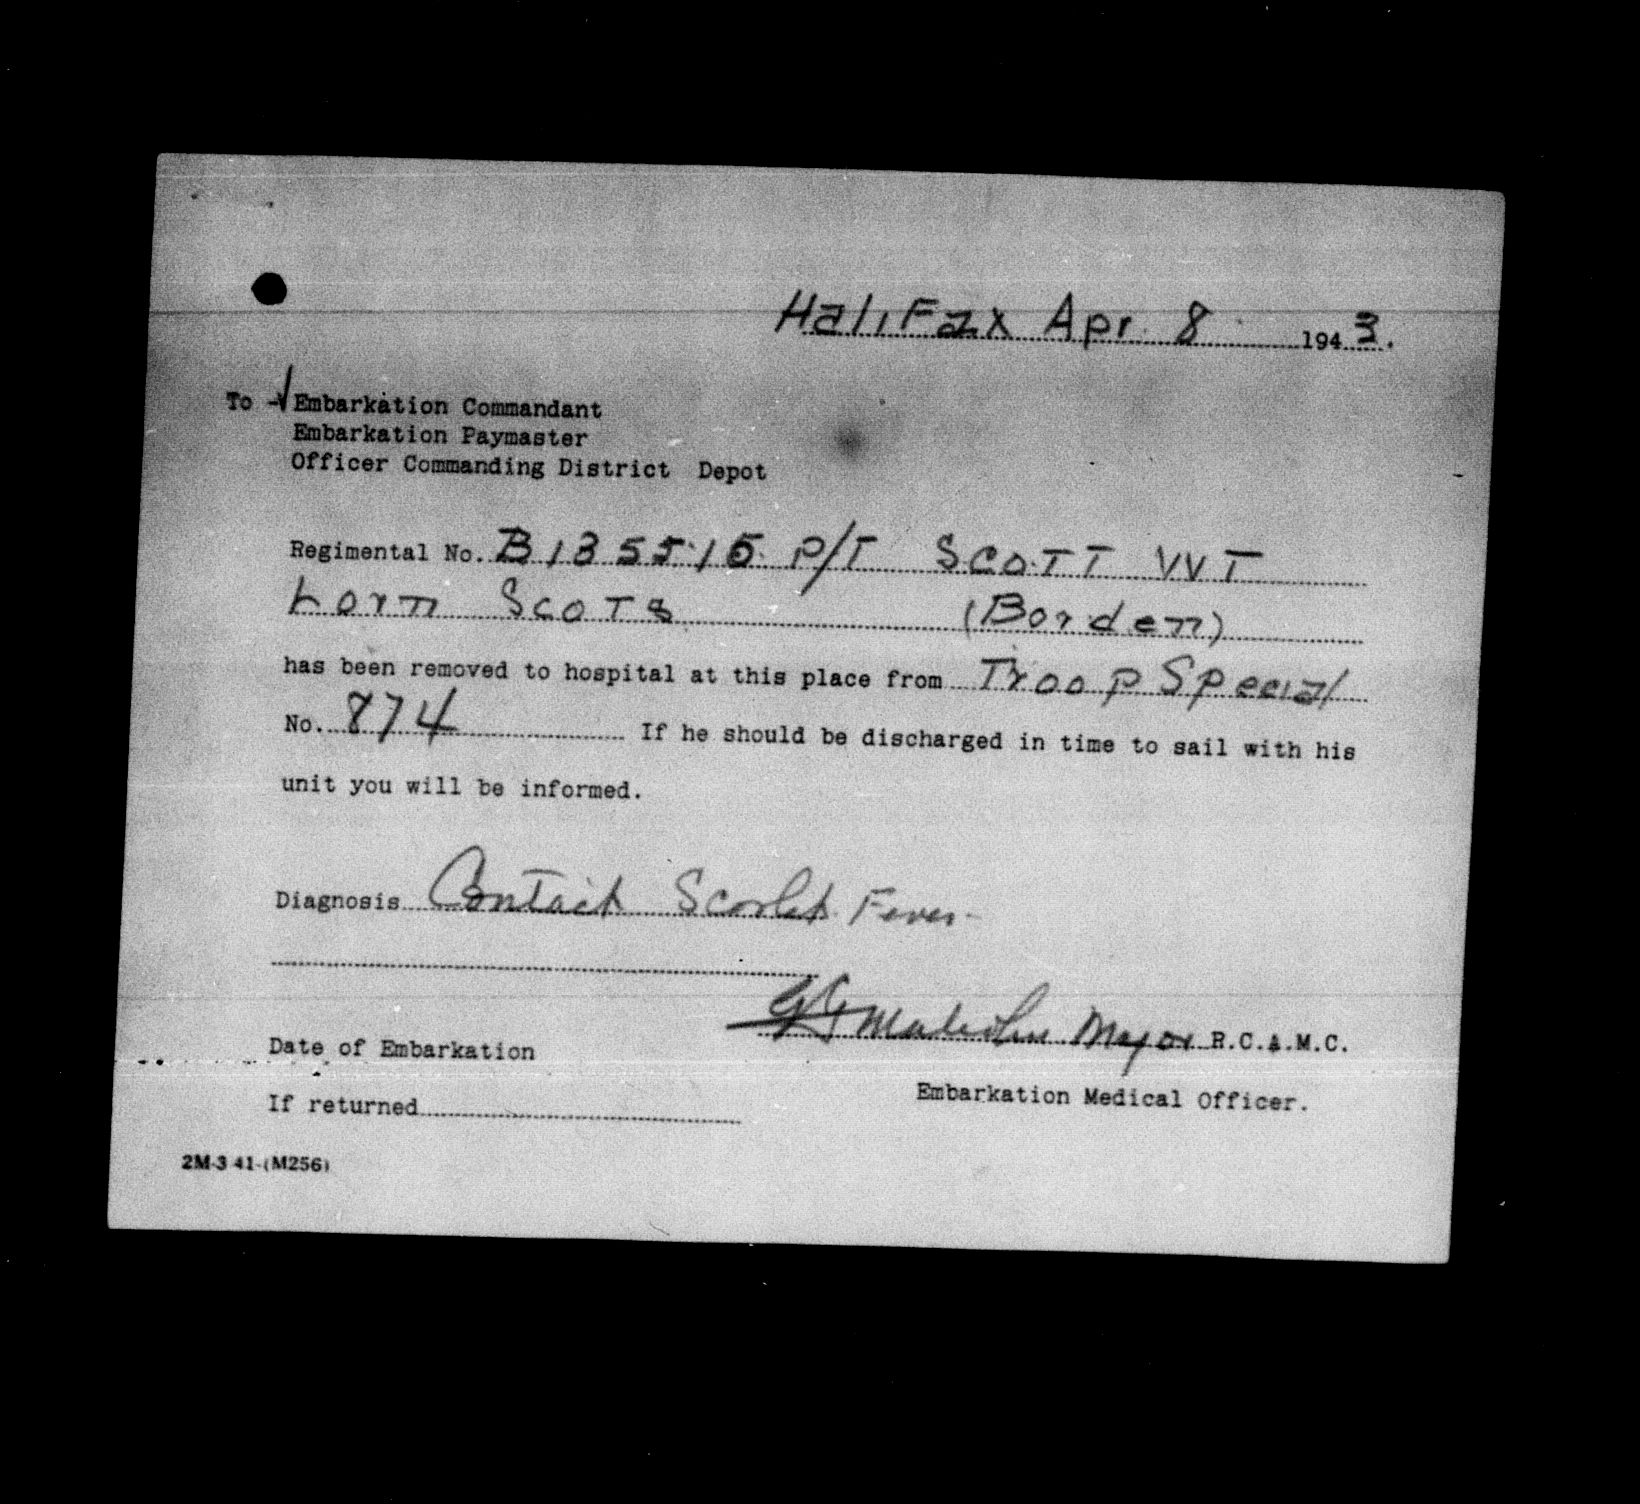 Halifax Apr. 8 1943.
To - √ Embarkation Commandant
Embarkation Paymaster
Officer Commanding District Depot
Regimental No. B135515 P/T SCOTT WT
Lorn Scots (Borden)
has been removed to hospital at this place from Troop Special
No. 874 If he should be discharged in time to sail with his
unit you will be informed.
Diagnosis Contact Scarlet Fever
Malcolm Major R.C.A.M.C.
Date of Embarkation
Embarkation Medical Officer.
If returned
2M-3 41-(M256)